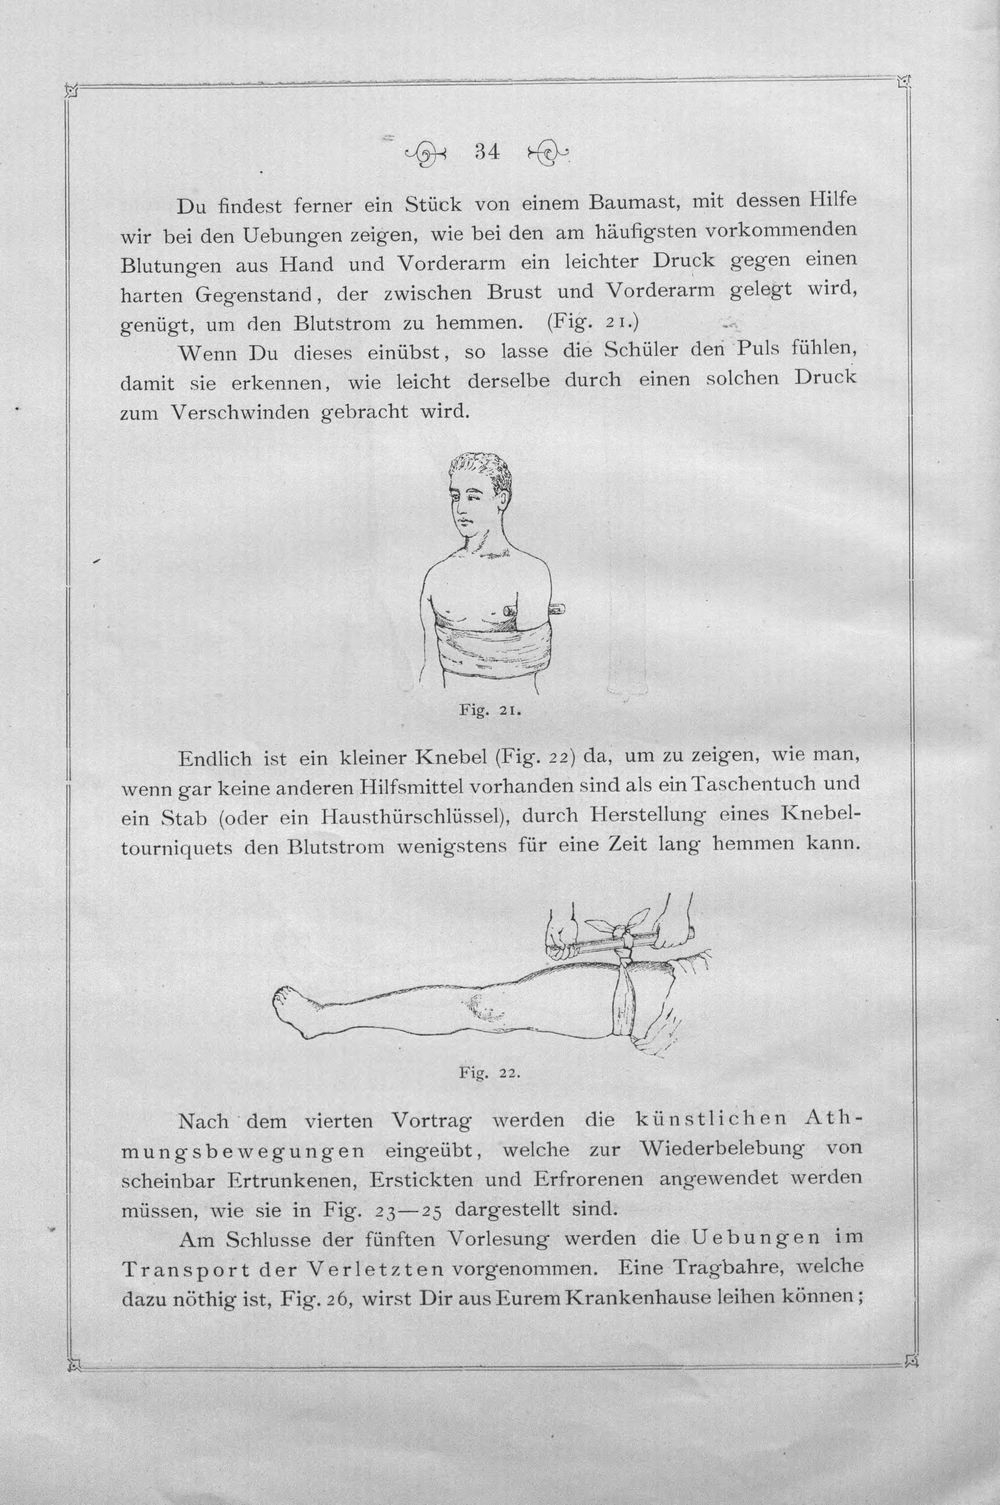 34
Du findest ferner ein Stück von einem Baumast, mit dessen Hilfe
wir bei den Uebungen zeigen, wie bei den am häufigsten vorkommenden
Blutungen aus Hand und Vorderarm ein leichter Druck gegen einen
harten Gegenstand, der zwischen Brust und Vorderarm gelegt wird,
genügt, um den Blutstrom zu hemmen. (Fig. 21.)
Wenn Du dieses einübst, so lasse die Schüler den Puls fühlen,
damit sie erkennen, wie leicht derselbe durch einen solchen Druck
zum Verschwinden gebracht wird.
Fig. 21.
Endlich ist ein kleiner Knebel (Fig. 22) da, um zu zeigen, wie man,
wenn gar keine anderen Hilfsmittel vorhanden sind als ein Taschentuch und
ein Stab (oder ein Hausthürschlüssel), durch Herstellung eines Knebel-
tourniquets den Blutstrom wenigstens für eine Zeit lang hemmen kann.
Fig. 22.
Nach dem vierten Vortrag werden die künstlichen Ath-
mungsbewegungen eingeübt, welche zur Wiederbelebung von
scheinbar Ertrunkenen, Erstickten und Erfrorenen angewendet werden
müssen, wie sie in Fig. 23—25 dargestellt sind.
Am Schlusse der fünften Vorlesung werden die Uebungen im
Transport der Verletzten vorgenommen. Eine Tragbahre, welche
dazu nöthig ist, Fig. 26, wirst Dir aus Eurem Krankenhause leihen können;